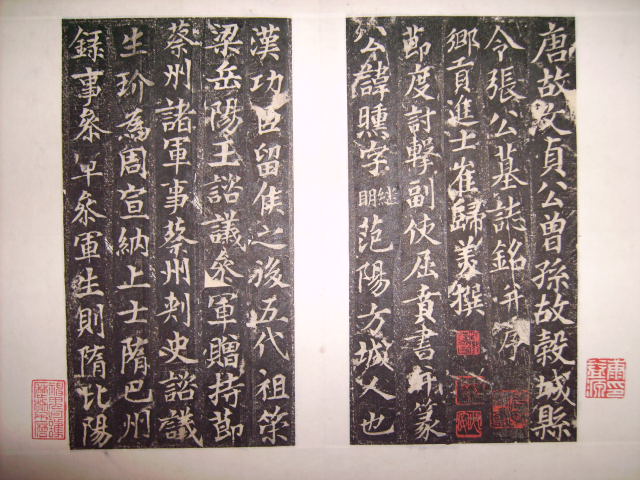 唐故文貞公曾孫故穀城縣
令張公墓誌銘并序
鄉貢進士崔歸美撰
節度討擊副使屈賁書并篆
公諱曛字繼明范陽方城人也
漢功臣留侯之後五代祖策
梁岳陽王諮議叅軍贈持節
蔡州諸軍事蔡州刺史諮議
生玠為周宣納上士隋巴州
録事叅軍叅軍生則隋比陽